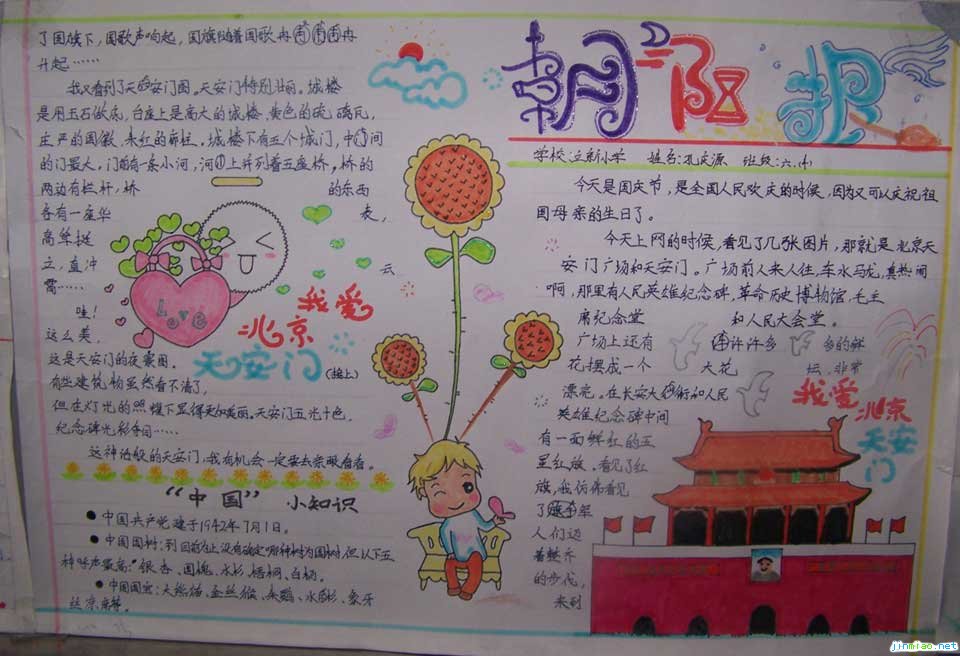 朝阳报
学校:立新小学 姓名:孔庆源 班级:六.(4)
今天是国庆节,是全国人民欢庆的时候,因为又可以庆祝祖
国母亲的生日了。
今天上网的时候,看见了几张图片,那就是北京天
安门广场和天安门。广场前人来人往,车水马龙,真热闹
啊,那里有人民英雄纪念碑,革命历史博物馆,毛主
席纪念堂 和人民大会堂。
广场上还有 许许多 多的鲜
花摆成一个 大花 坛,非常
漂亮。在长安大街和人民
英雄纪念碑中间
有一面鲜红的五
星红旗。看见了红
旗,我仿佛看见
了
人们迈
着整齐
的步伐,
来到
我爱
北京
天安
门
了国旗下,国歌声响起,国旗随着国歌冉冉
升起……
我又看到了天安门图。天安门特别壮丽。城楼
是用玉石做底,台座上是高大的城楼,黄色的琉璃瓦,
庄严的国徽,朱红的廊柱。城楼下有五个城门,中间
的门最大,门前有一条小河,河上并列着五座桥,桥的
两边有栏杆,桥 的东西
各有一座华 表,
高耸挺
立,直冲 云
霄……
哇!
这么美,
这是天安门的夜景图。
有些建筑物虽然看不清了,
但在灯光的照耀下显得更加美丽。天安门五光十色,
纪念碑光彩夺目……
这神话般的天安门,我有机会一定要去亲眼看看。
Love
我爱
北京
天安门(接上)
“中国” 小知识
●中国共产党建于1942年7月1日。
●中国国树:到目前为止没有确定哪种树为国树,但以下五
种呼声最高:银杏、国槐、水杉、梧桐、白杨。
●中国国宝:大熊猫、金丝猴、朱鹮、水杉、象牙
jinmiao.net